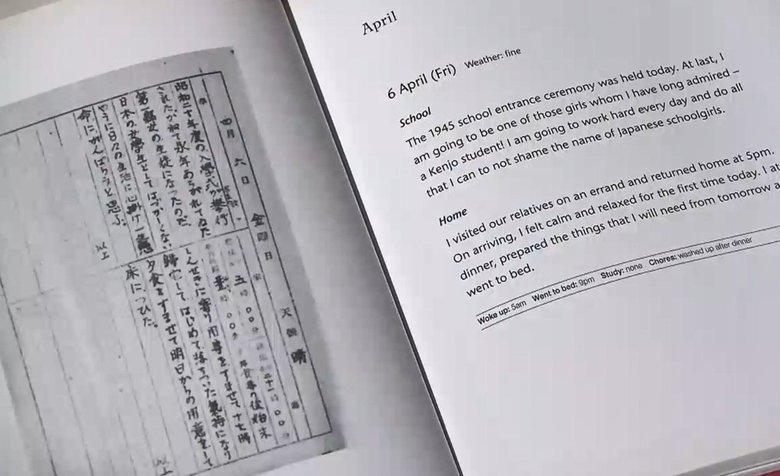 四月六日 金曜日 天候 晴
昭和二十年度の入學式が擧行
されたが初て永年あこがれてゐた
第一縣女の生徒になつたのだ
日本の女學生としてはづかしくない
やうに日々の生活に心掛け一生懸
命にがんばらうと思ふ
以上
しんせきに寄り用事をすませて十七時
歸宅してはじめて落ちついた氣持になり
夕食をすませて明日からの用意をして
床についた。
以上
April
6 April (Fri) Weather: fine
School
The 1945 school entrance ceremony was held today. At last, I
am going to be one of those girls whom I have long admired –
a Kenjo student! I am going to work hard every day and do all
that I can to not shame the name of Japanese schoolgirls.
Home
I visited our relatives on an errand and returned home at 5pm.
On arriving, I felt calm and relaxed for the first time today. I at
dinner, prepared the things that I will need from tomorrow
went to bed.
Woke up: 5am Went to bed: 9pm Study: none Chores: washed up after dinner